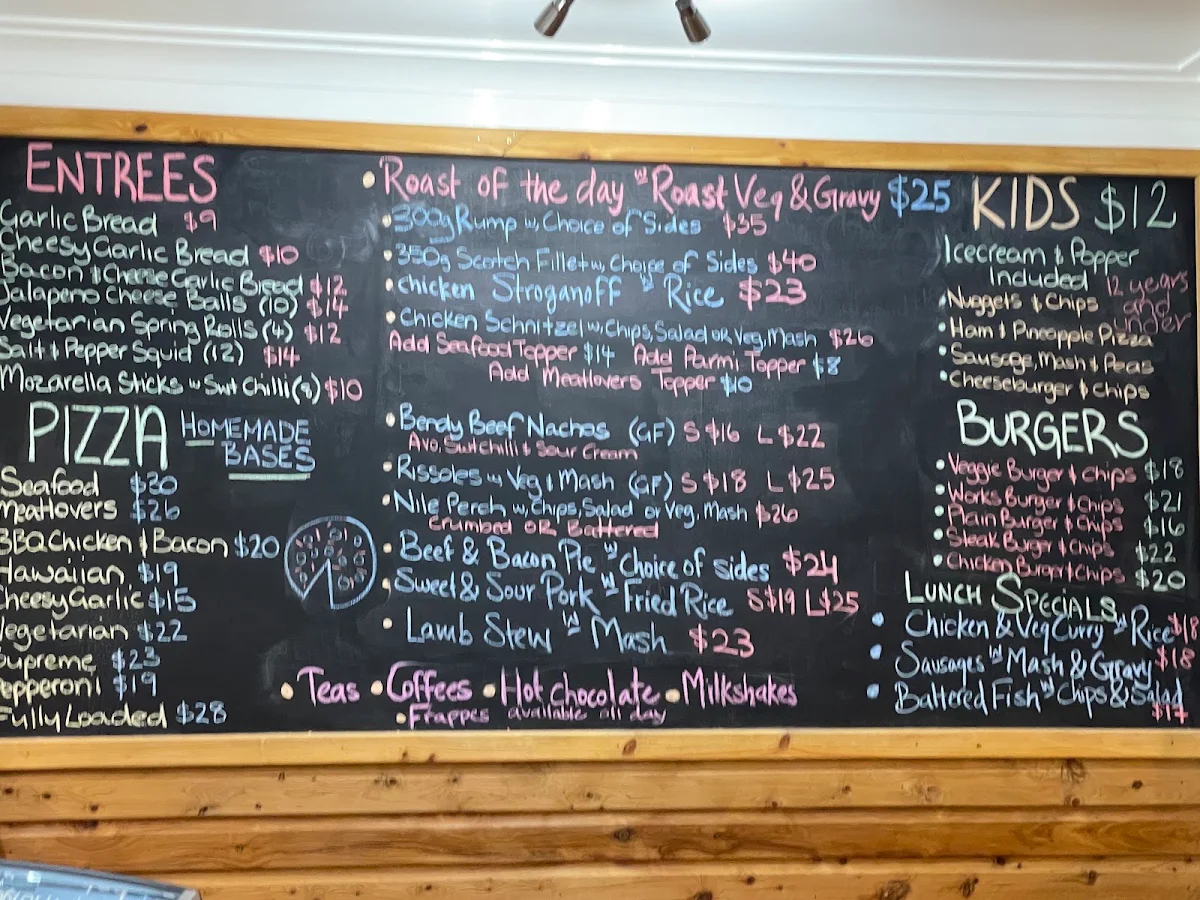 ENTREES
Garlic Bread $9
Cheesy Garlic Bread $10
Bacon & Cheese Garlic Bread $12
Jalapeno Cheese Balls (10) $14
Vegetarian Spring Rolls (4) $12
Salt & Pepper Squid (12) $14
Mozarella Sticks w Swt Chilli (8) $10
PIZZA HOMEMADE BASES
Seafood $30
Meatlovers $26
BBQ Chicken & Bacon $20
Hawaiian $19
Cheesy Garlic $15
Vegetarian $22
Supreme $23
Pepperoni $19
Fully Loaded $28
• Roast of the day w Roast Veg & Gravy $25
• 300g Rump w, Choice of Sides $35
• 350g Scotch Fillet w, Choice of Sides $40
• chicken Stroganoff w Rice $23
• Chicken Schnitzel w, Chips, Salad OR Veg, Mash $26
Add Seafood Topper $14 Add Parmi Topper $8
Add Meatlovers Topper $10
• Bendy Beef Nachos (GF) S $16 L $22
Avo, Swt chilli & Sour Cream
• Rissoles w Veg & Mash (GF) S $18 L $25
• Nile Perch w, Chips, Salad or Veg, Mash $26
Crumbed OR Battered
• Beef & Bacon Pie w Choice of sides $24
• Sweet & Sour Pork w Fried Rice S $19 L $25
• Lamb Stew w Mash $23
• Teas • Coffees • Hot chocolate • Milkshakes
• Frappes available all day
KIDS $12
Icecream & Popper
Included 12 years and under
• Nuggets & Chips
• Ham & Pineapple Pizza
• Sausage, Mash & Peas
• Cheeseburger & Chips
BURGERS
• Veggie Burger & Chips $18
• Works Burger & Chips $21
• Plain Burger & Chips $16
• Steak Burger & Chips $22
• Chicken Burger & Chips $20
LUNCH SPECIALS
• Chicken & Veg Curry w Rice $18
• Sausages w Mash & Gravy $18
• Battered Fish w Chips & Salad
$17